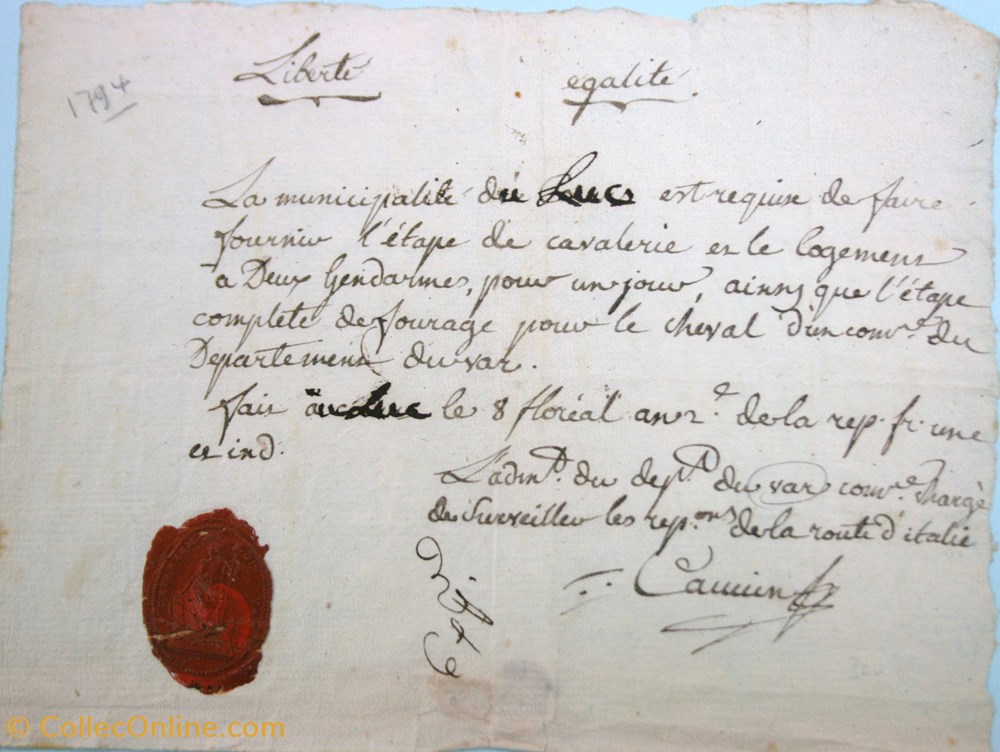 1794
Liberté égalité
La municipalité du Luc est requise de faire
fournir l'étape de cavalerie et le logement
a Deux Gendarmes, pour un jour, ainsy que l'étape
complete de fourage pour le cheval d'un com.re du
Departement du var.
fait au Luc le 8 floréal an 2.e de la rep. fr. une
et ind.
L'adm.r du dep.t du var com.re chargé
de surveiller les rep.ons de la route d'italie
© CollecOnline.com